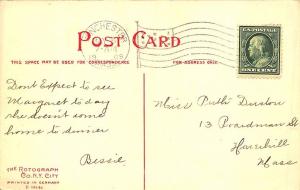 POST CARD
THIS SPACE MAY BE USED FOR CORRESPONDENCE
FOR ADDRESS ONLY
U.S. POSTAGE
ONE CENT
Dont Expect to see
Margaret to day
she doesn't some
home to dinner
Bessie
Miss Ruth Duston
13 Boardman St
Haverhill
Mass
THE ROTOGRAPH
CO. N.Y. CITY
PRINTED IN GERMANY